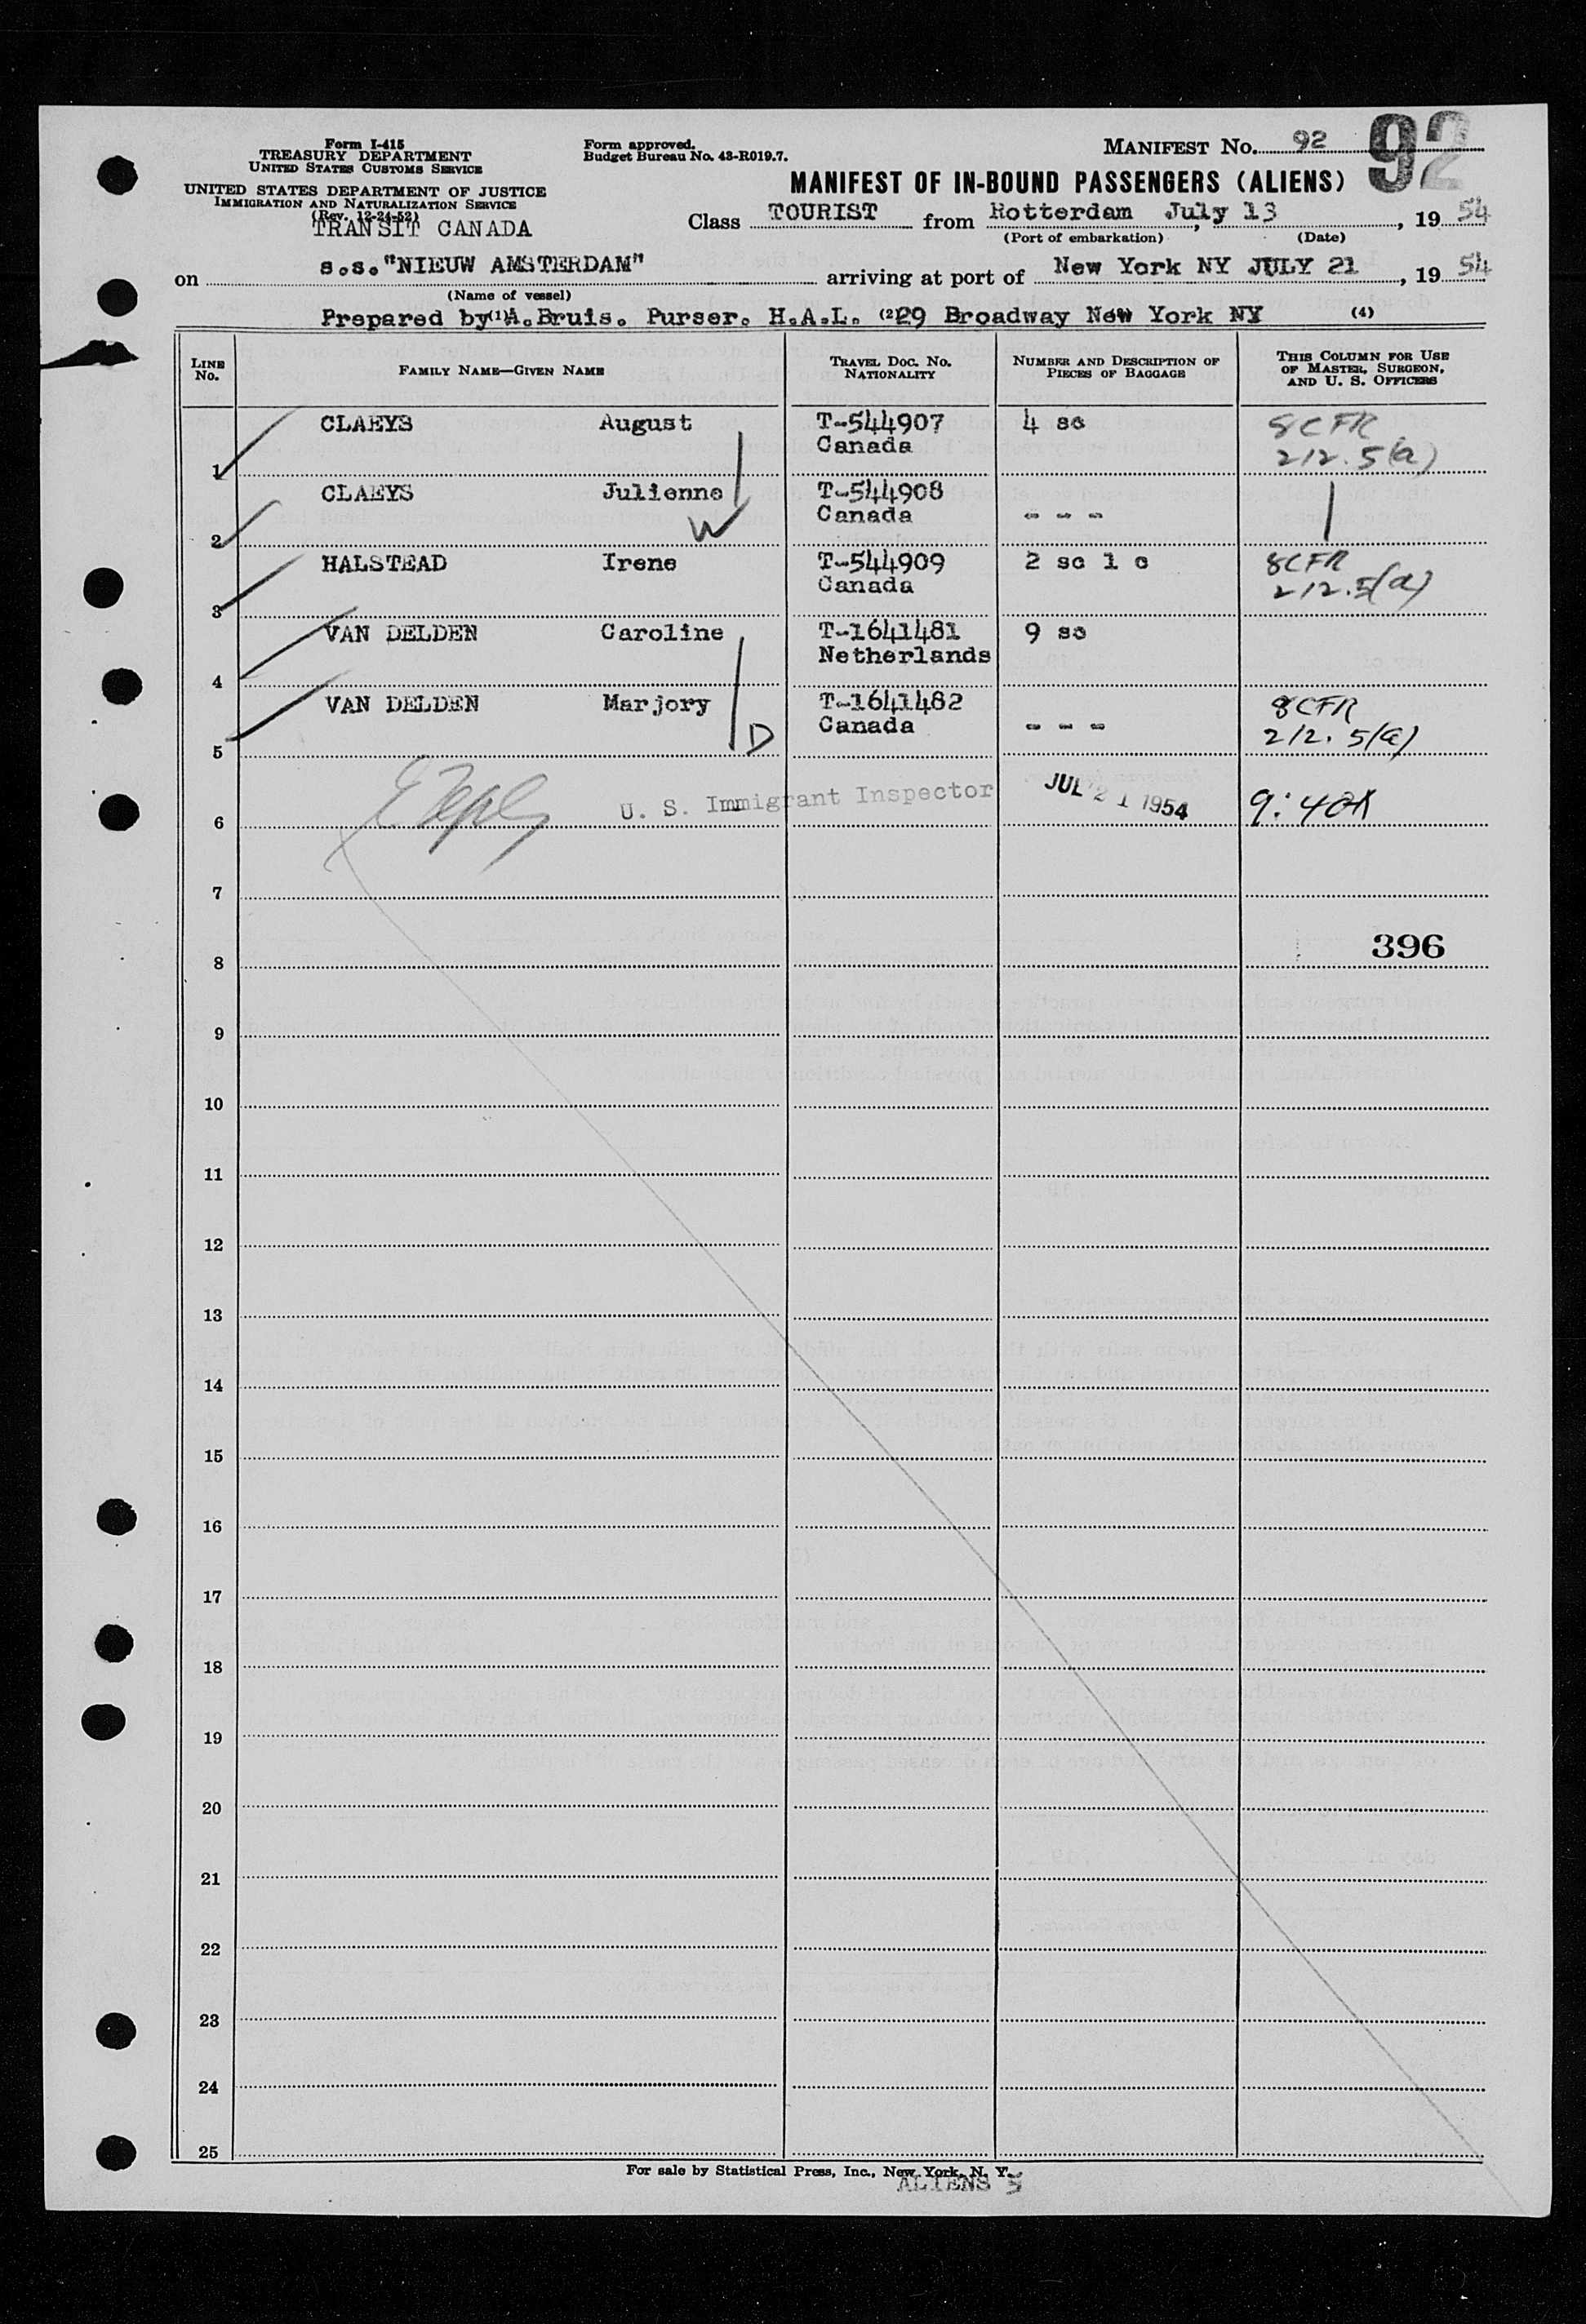 Form I-415
TREASURY DEPARTMENT
UNITED STATES CUSTOMS SERVICE
UNITED STATES DEPARTMENT OF JUSTICE
IMMIGRATION AND NATURALIZATION SERVICE
(Rev. 12-24-52)
TRANSIT CANADA
Form approved.
Budget Bureau No. 43-R019.7.
MANIFEST NO. 92 92
MANIFEST OF IN-BOUND PASSENGERS (ALIENS)
Class TOURIST from Rotterdam July 13, 19 54
(Port of embarkation) (Date)
on s.s."NIEUW AMSTERDAM" arriving at port of New York NY JULY 21, 19 54
(Name of vessel)
Prepared by (1) A.Bruis. Purser. H.A.L. (2) 29 Broadway New York NY (4)
LINE NO. FAMILY NAME—GIVEN NAME TRAVEL DOC. NO. NATIONALITY NUMBER AND DESCRIPTION OF PIECES OF BAGGAGE THIS COLUMN FOR USE OF MASTER, SURGEON, AND U. S. OFFICERS
CLAEYS August T-544907 4 sc 8CFR
1 Canada 212.5(a)
CLAEYS Julienne T-544908
2 W Canada - - -
HALSTEAD Irene T-544909 2 sc 1 c 8CFR
3 Canada 212.5(a)
VAN DELDEN Caroline T-1641481 9 sc
4 Netherlands
VAN DELDEN Marjory T-1641482 8CFR
5 D Canada - - - 212.5(a)
6 U. S. Immigrant Inspector JUL 21 1954 9:40A
7
396
8
9
10
11
12
13
14
15
16
17
18
19
20
21
22
23
24
25
For sale by Statistical Press, Inc., New York, N. Y.
ALIENS 5